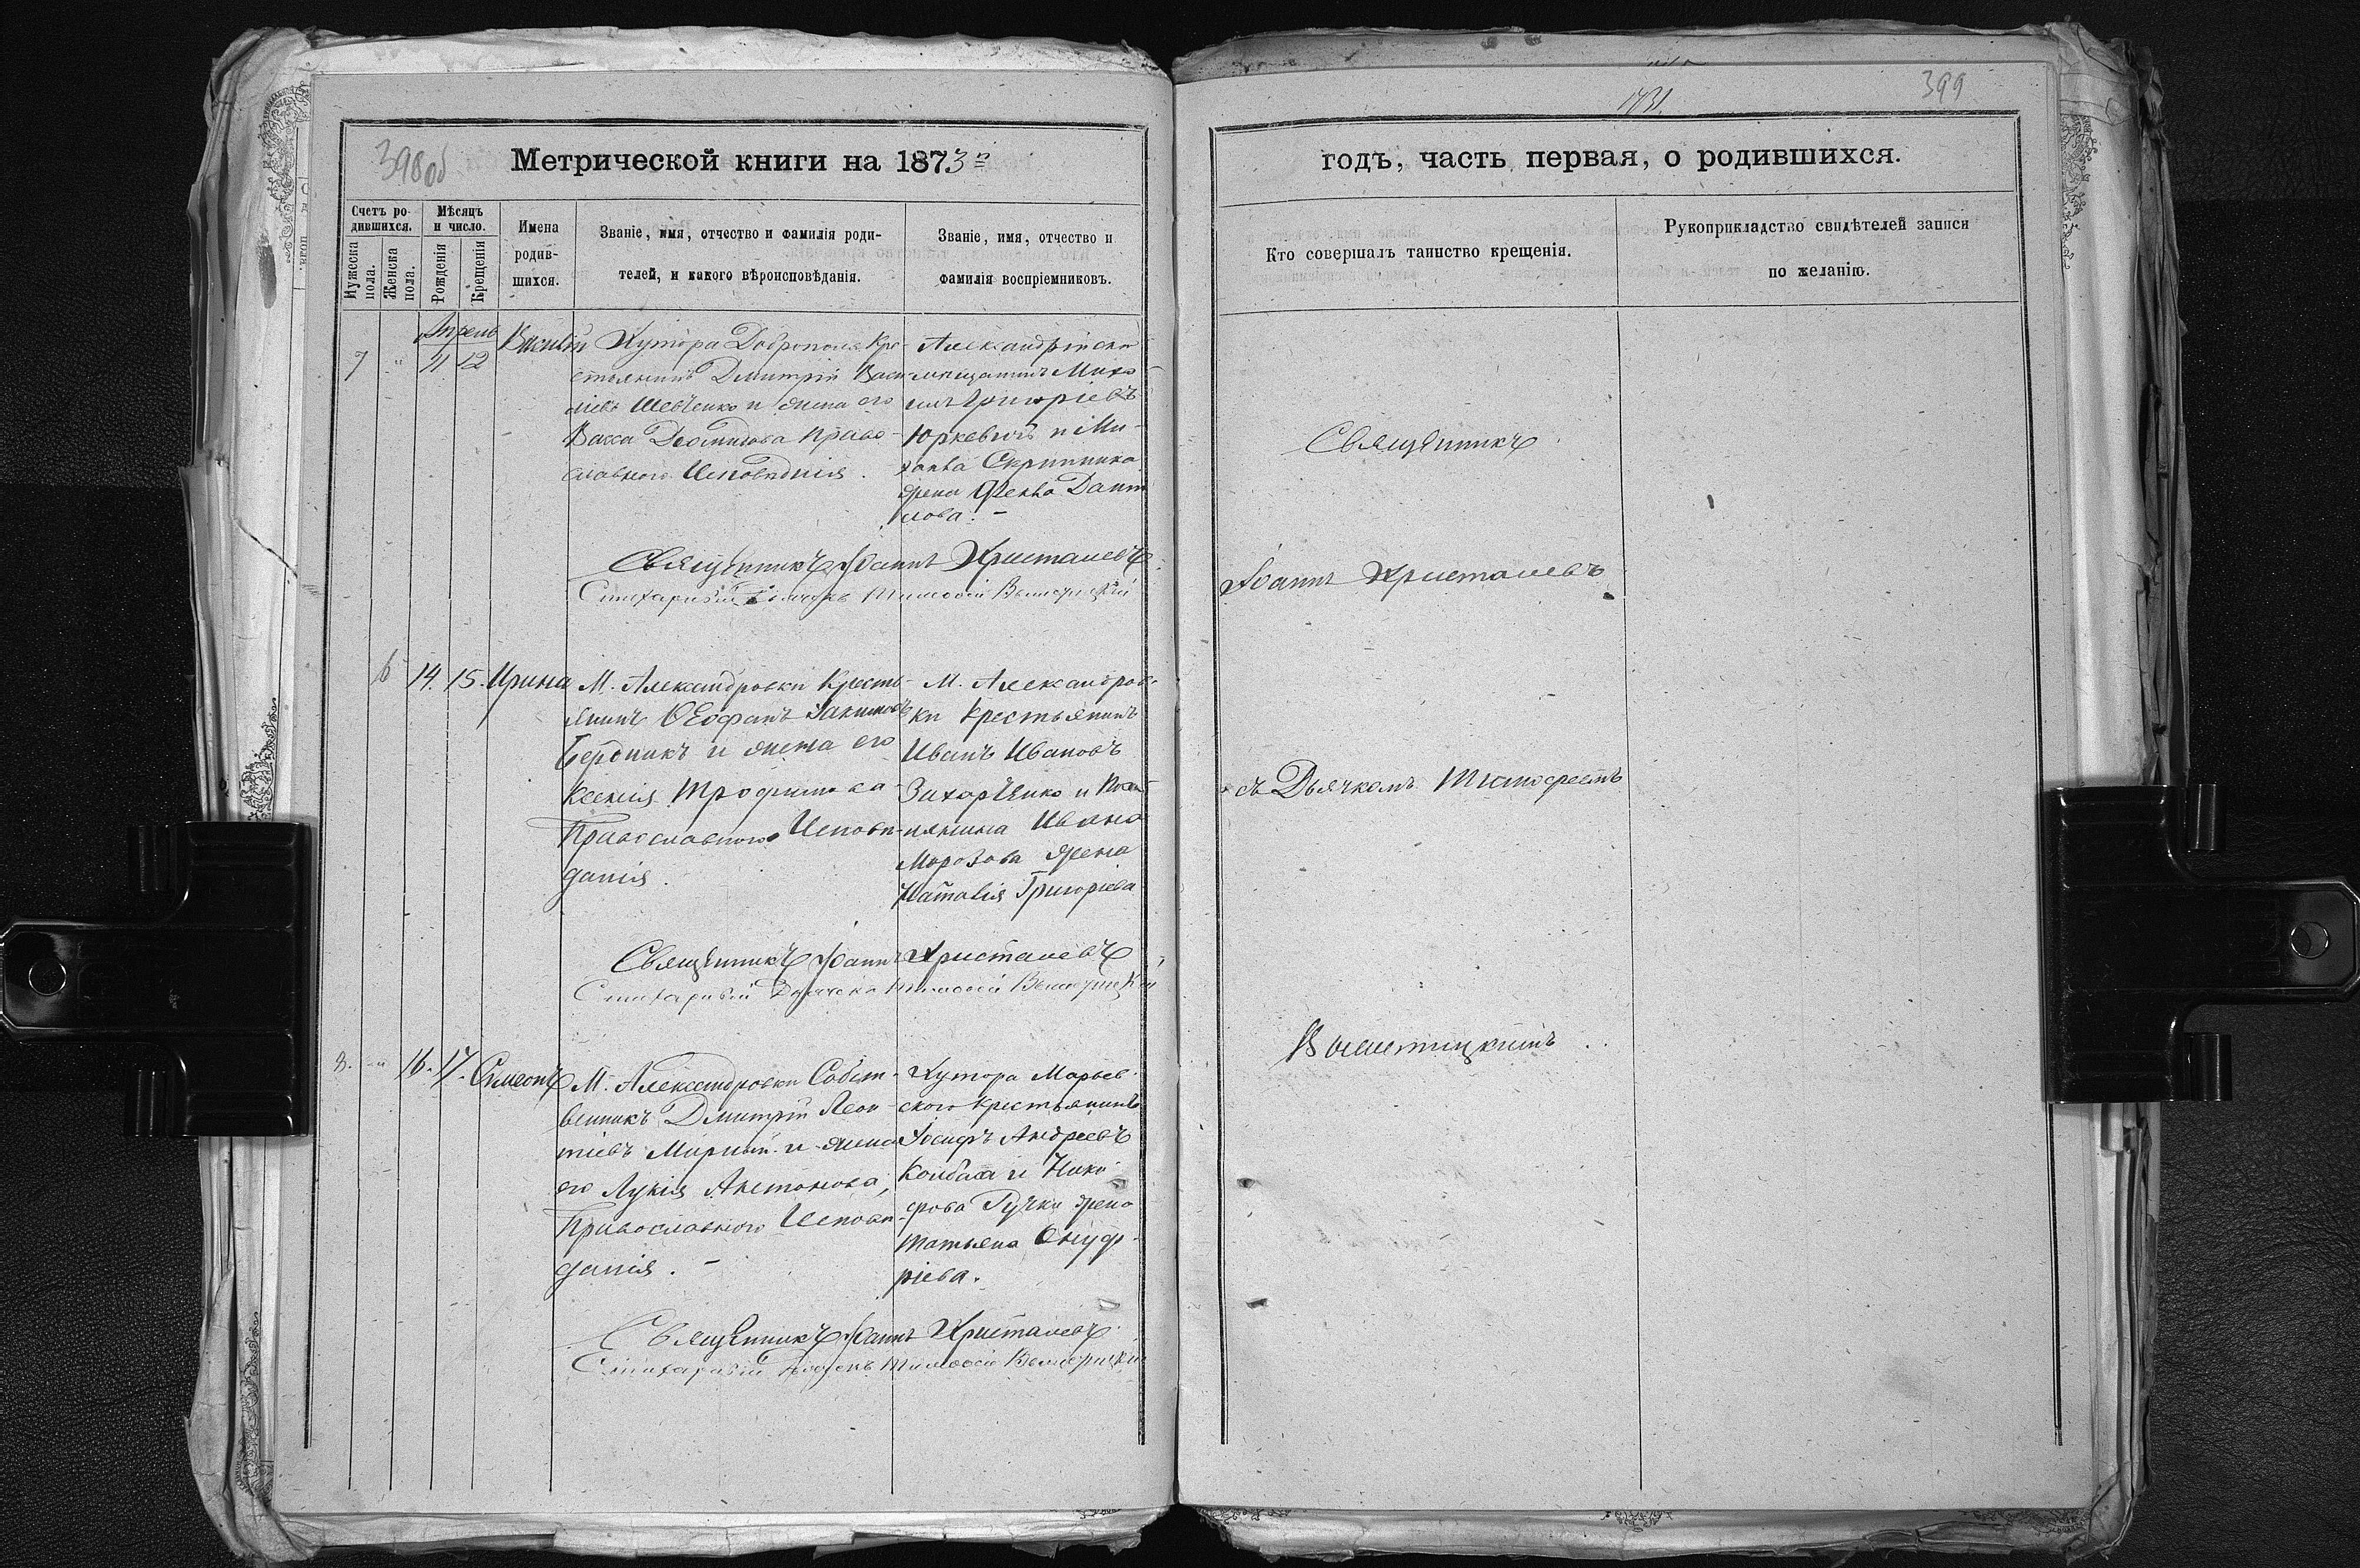 398об
Метрической книги на 1873 г
Счетъ ро-
дившихся.
Мужеска
пола.
Женска
пола.
Мѣсяцъ
и число.
Рожденія
Крещенія
Имена
родив-
шихся.
Званіе, имя, отчество и фамилія роди-
телей, и какого вѣроисповѣданія.
Званіе, имя, отчество и
фамилія воспріемниковъ.
Апрель
7 " 11 12 Василій
Хутора Доброполя Кре-
стьянинъ Дмитрій Васи
ліевъ Шевченко и жена его
Васса Право-
славного Исповѣданія.
Александрійскій
мещанинъ Миха
илъ Григоріевъ
Юркевичъ и Ми-
хаила Скрипника
жена Фекла Дани
лова. -
Священникъ Іоаннъ Христалевъ
Стихарный Дьячекъ Тимофей
6 14. 15. Ирина
М. Александровки Кресть-
янинъ Ѳеофанъ
Бердникъ и жена его
Ксенія Трофимова
Православного Исповѣ-
данія.
М. Александров-
ки Крестьянинъ
Иванъ Ивановъ
Захарченко и
Ивана
Морозова жена
Наталія Григоріева
Священникъ Іоаннъ Христалевъ
Стихарный Дьячекъ Тимофей
8. " 16. 17. Симеонъ
М. Александровки Собст-
венникъ Дмитрій Леон-
тіевъ Мирный и жена
его Лукія Антонова,
Православного Исповѣ-
данія. -
Хутора Марьев-
ского Крестьянинъ
Іосифъ Андреевъ
Колбаса и Ники-
фора Ручки жена
Татьяна Онуф-
ріева.
Священникъ Іоаннъ Христалевъ
Стихарный Дьячекъ Тимофей
1731.
399
годъ, часть первая, о родившихся.
Кто совершалъ таинство крещенія.
Рукоприкладство свидѣтелей записи
по желанію.
Священникъ
Іоаннъ Христалевъ
съ Дьячкомъ